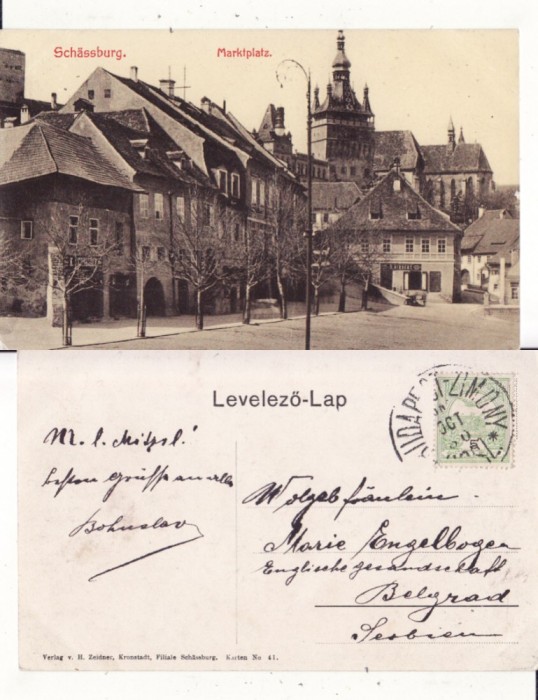 Schässburg.
Marktplatz.
Levelező-Lap
M. l. Mitzl!
besten Grüsse an alle
Bohuslav
Wolgeb fräulein
Marie Engelbogen
Englische gesandschaft
Belgrad
Serbien
Verlag v. H. Zeidner, Kronstadt, Filiale Schässburg. Karten No 41.